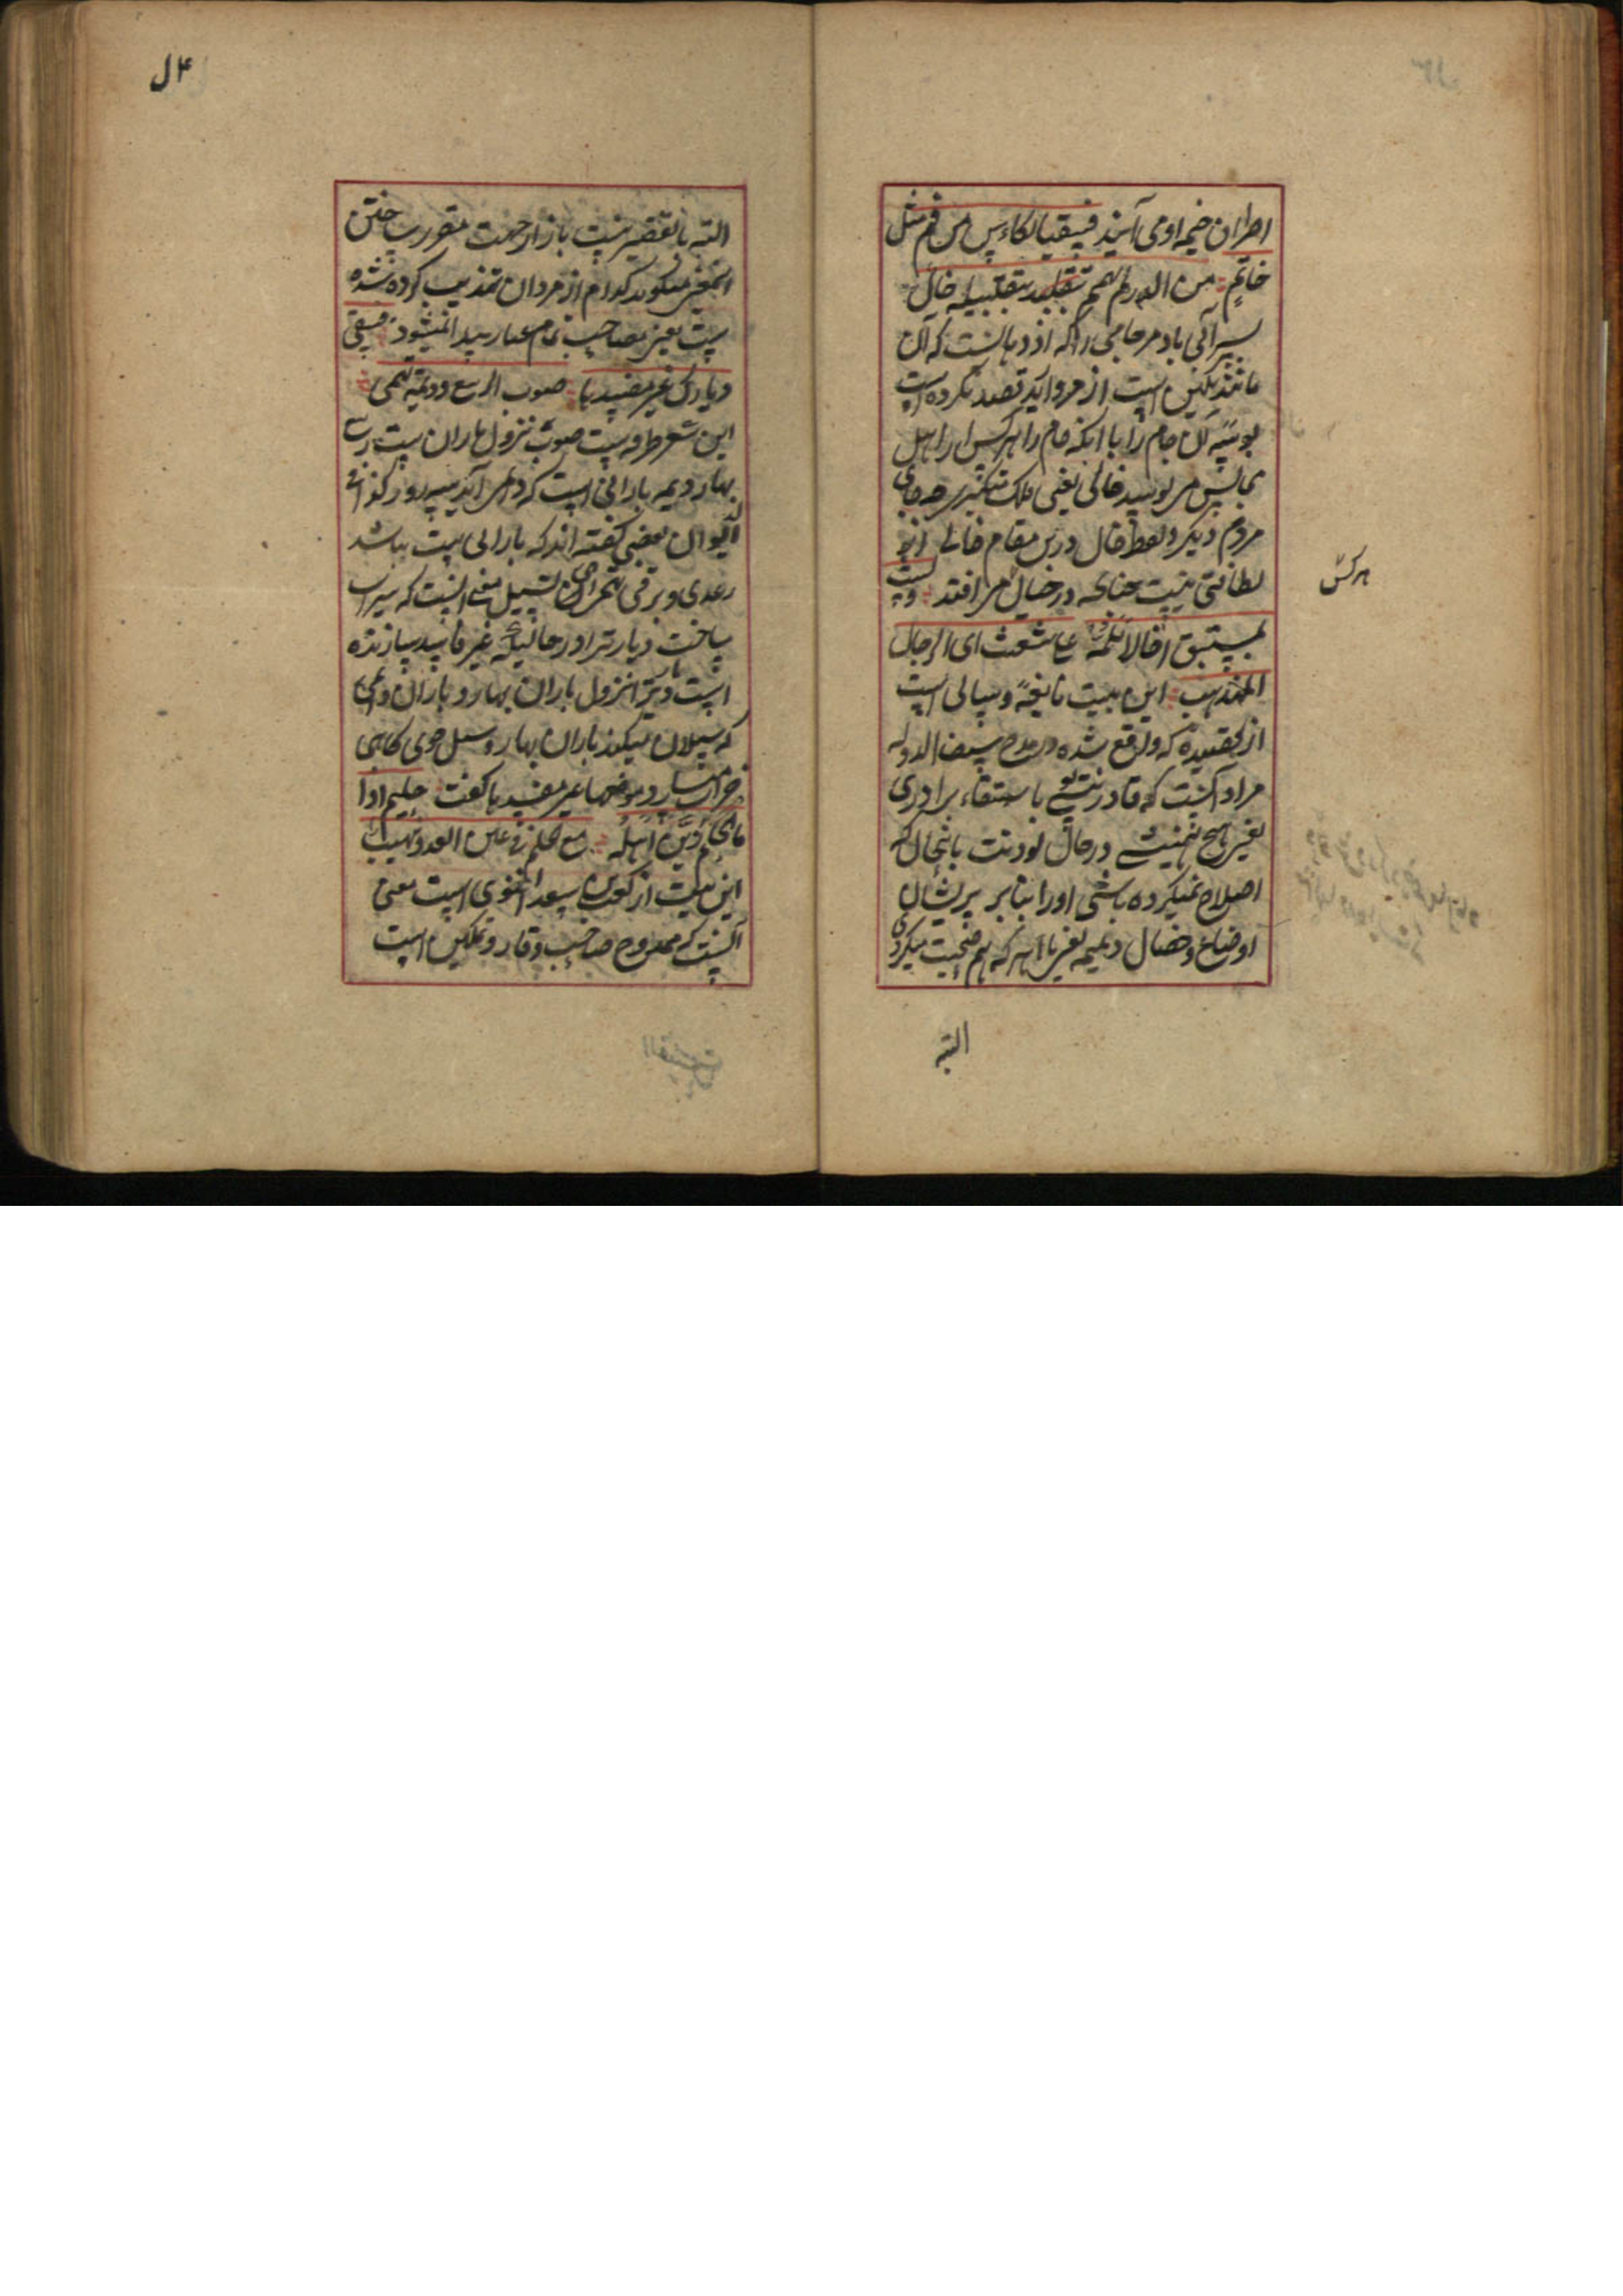 اطراف خیمه او می آیند فیسقیا لکاءس من فم مثل
خاتم من الدر لم یهمم بتقبیله خال
سیرآبی باد مر جامی را که از دهانیست که آن
مانند نگین است از مروارید قصد نکرده است
بوسه آن جام را با آنکه جام را هر کس از اهل
مجالس می بوسد خالی یعنی ملک متکبری چه جای
مردم دیگر و لفظ خال درین مقام خالی از
لطافتی نیست چنانکه در خیال می افتد ولست
بمستبق اخا لا تلمه علی شعث ای الرجال
المهذب این بیت نابغه است
از قصیده که واقع شده در مدح
مراد آنست که قادر نیستی تو باستبقاء برادری
بغیر هیچ در حال بودنت بانحال که
اصلاح نمیکرده باشی او را بنابر پریشان
اوضاع و خصال ذمیمه یعنی با هر که هم صحبت میکردی
هر کس
البته
البته با تقصیر نیست باز از جهت مقرر ساختن
این معنی میگوید کدام از مردان تهذیب کرده شده
است یعنی مصاحب تمام عیار پیدا نمیشود فسقی
دیارک غیر مفسدها صوب الربیع ودیمة تهمی
این شعر طرفه است صوب نزول باران است ربیع
بهار دیمه بارانی است که دایم آید سه روز
بعضی گفته اند که بارانی است باشد
رعدی و برقی تهمی ای تسیل معنی آنست که سیراب
ساخت دیار ترا در حالتیکه غیر فاسد سازنده
است دیار ترا نزول باران بهار و باران دایمی
که سیلان میکند باران بهار و سیل جوی گاهی
خراب میسازد موضعها غیر مفسدها گفت حلیم اذا
ما الحلم زین اهله مع الحلم فی عین العدو مهیب
این بیت از کعب بن سعد الغنوی است معنی
آنست که ممدوح صاحب وقار و تمکین است